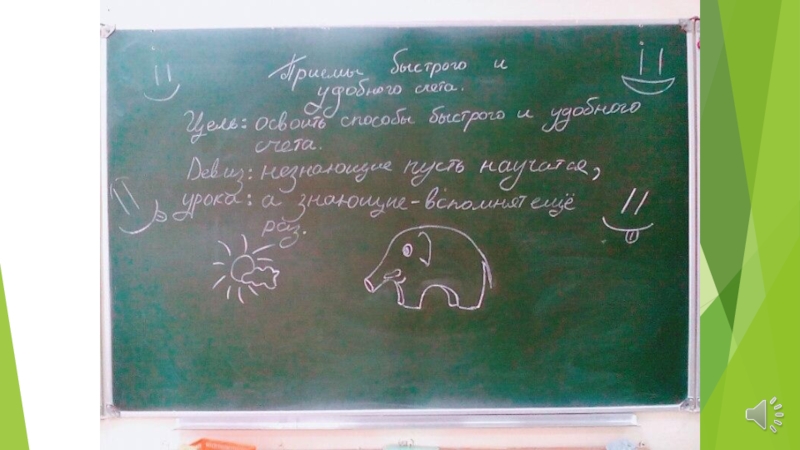 Приемы быстрого и
удобного счета.
Цель: освоить способы быстрого и удобного
счета.
Девиз: незнающие пусть научатся,
урока: а знающие - вспомнят ещё
раз.